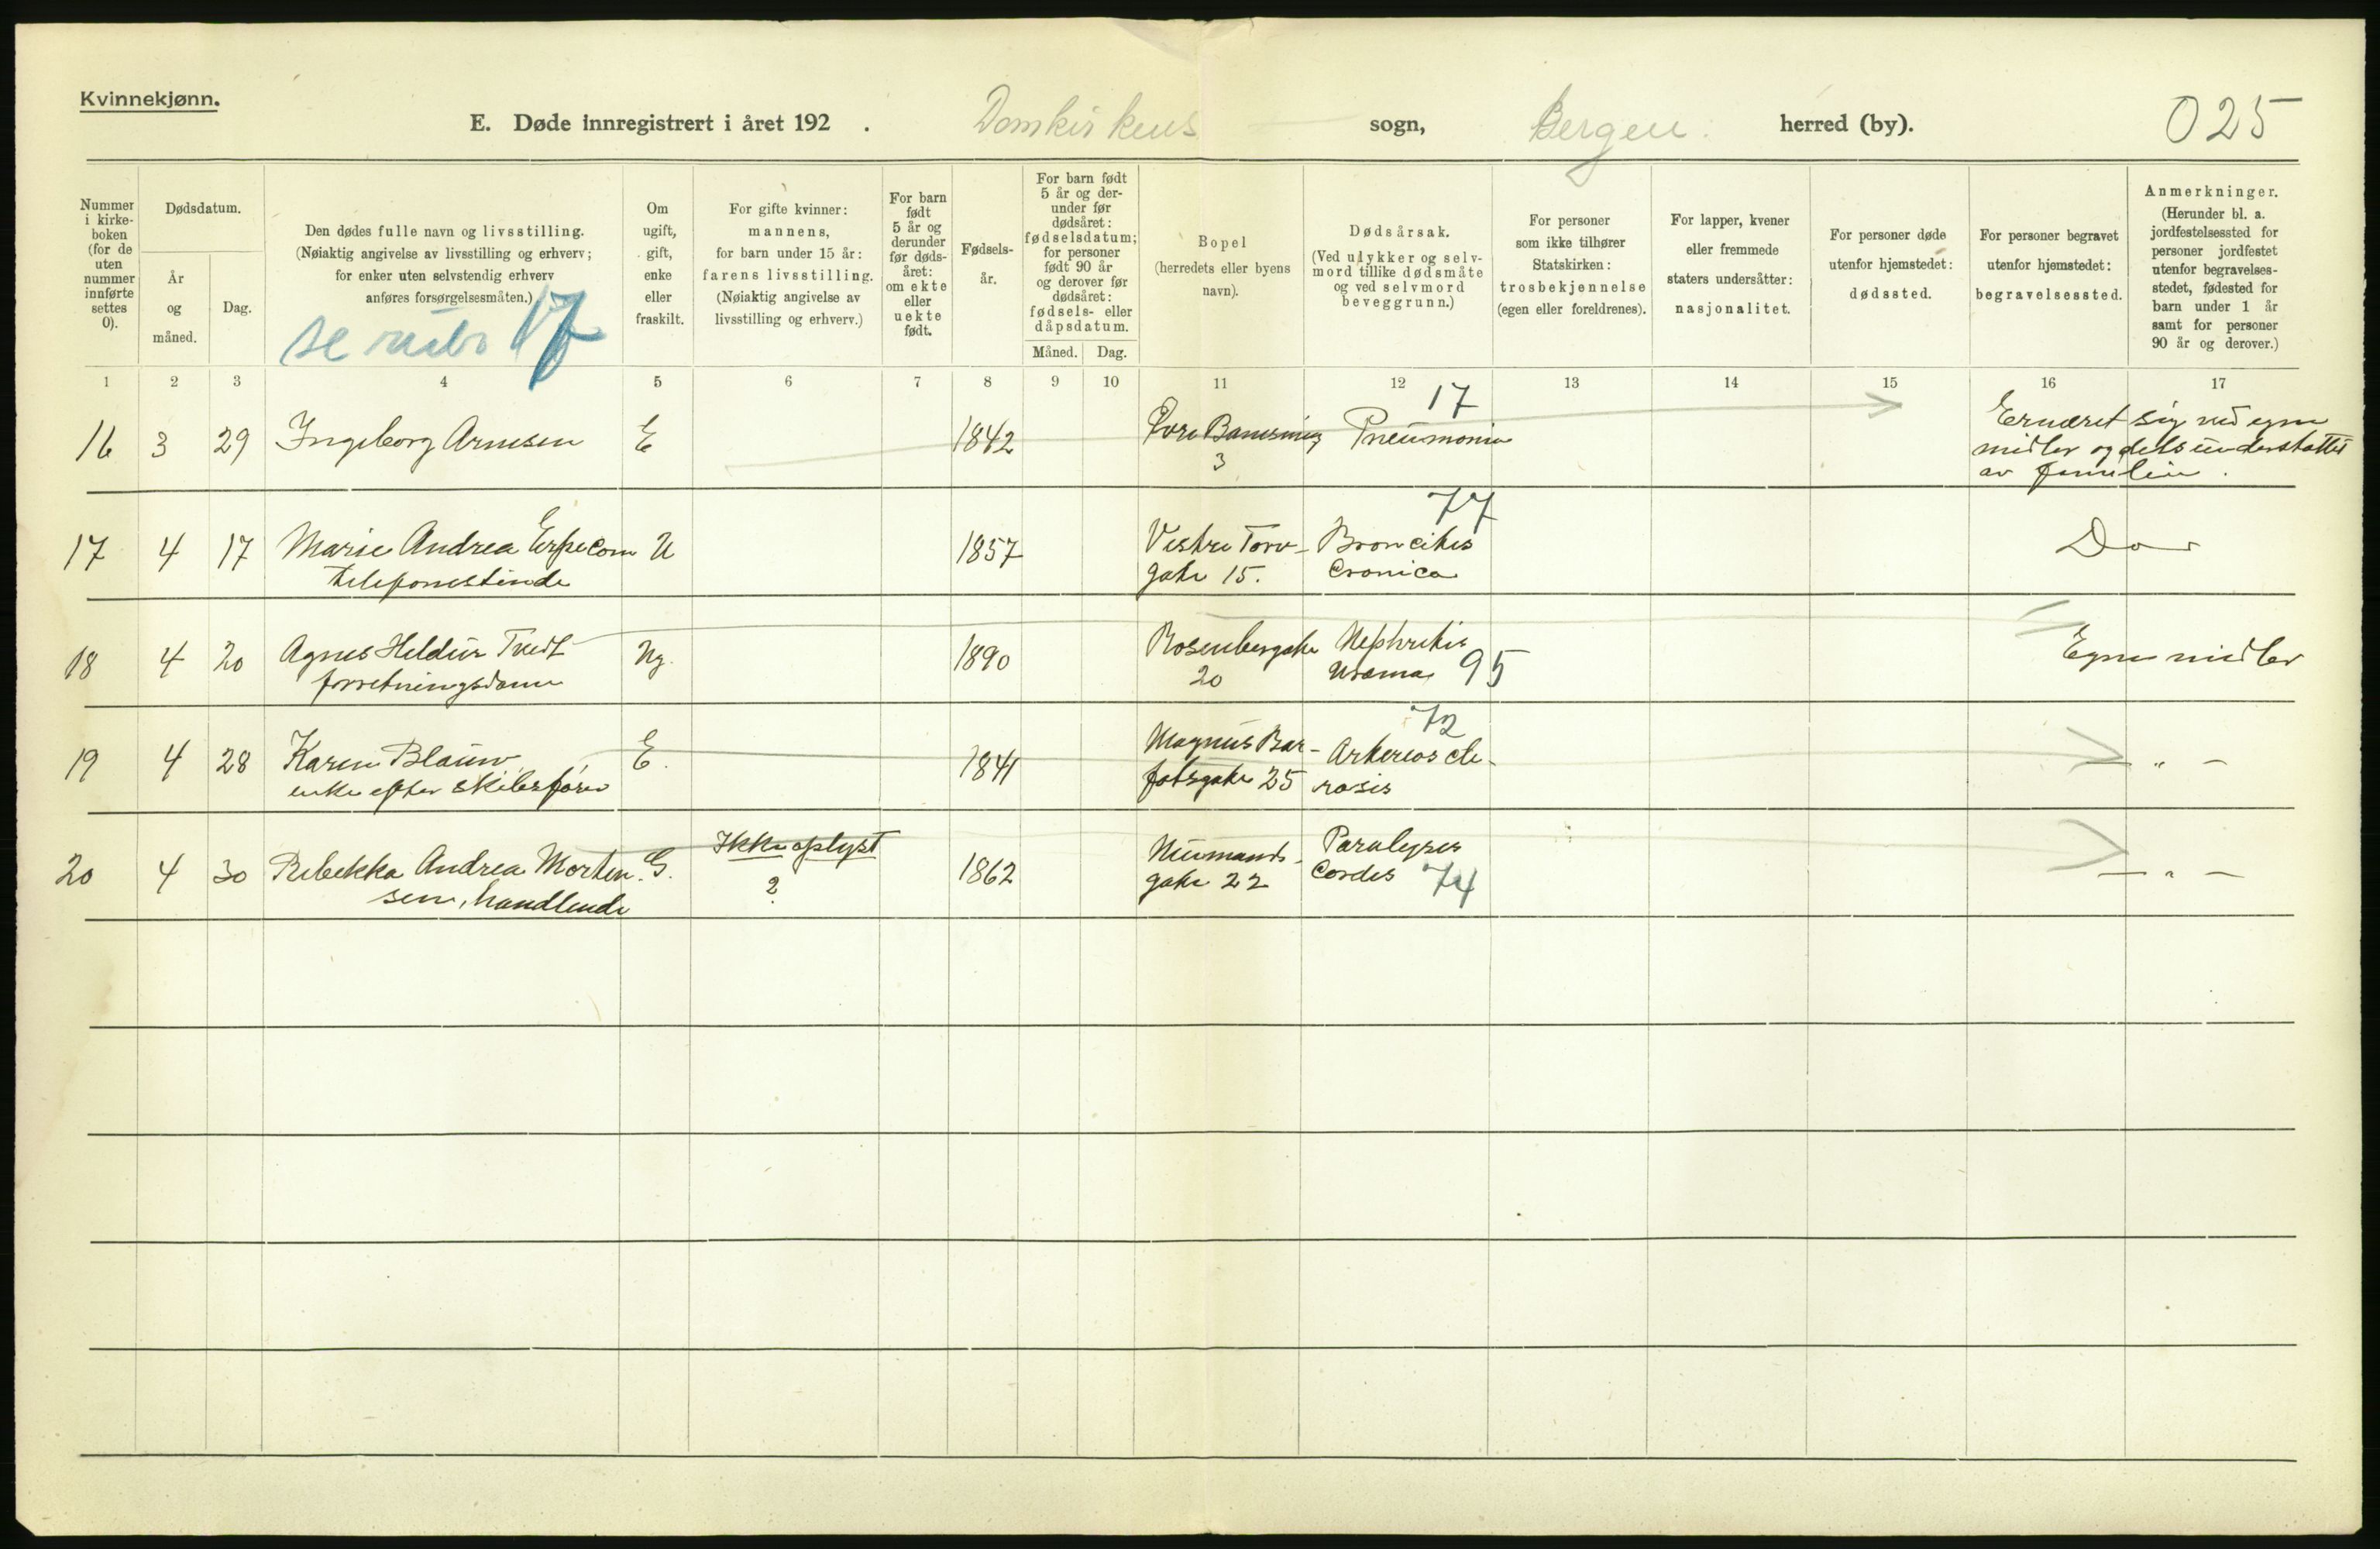 Kvinnekjønn.
E. Døde innregistrert i året 192 . Domkirkens sogn, Bergen. herred (by). 025
Nummer
i kirke-
boken
(for de
uten
nummer
innførte
settes
0).
Dødsdatum.
År
og
måned.
Dag.
Den dødes fulle navn og livsstilling.
(Nøiaktig angivelse av livsstilling og erhverv;
for enker uten selvstendig erhverv
anføres forsørgelsesmåten.)
se 17
Om
ugift,
gift,
enke
eller
fraskilt.
For gifte kvinner:
mannens,
for barn under 15 år:
farens livsstilling.
(Nøiaktig angivelse av
livsstilling og erhverv.)
For barn
født
5 år og
derunder
før døds-
året:
om ekte
eller
uekte
født.
Fødsels-
år.
For barn født
5 år og der-
under før
dødsåret:
fødselsdatum;
for personer
født 90 år
og derover før
dødsåret:
fødsels- eller
dåpsdatum.
Måned. Dag.
Bopel
(herredets eller byens
navn).
Dødsårsak.
(Ved ulykker og selv-
mord tillike dødsmåte
og ved selvmord
beveggrunn.)
For personer
som ikke tilhører
Statskirken:
trosbekjennelse
(egen eller foreldrenes).
For lapper, kvener
eller fremmede
staters undersåtter:
nasjonalitet.
For personer døde
utenfor hjemstedet:
dødssted.
For personer begravet
utenfor hjemstedet:
begravelsessted.
Anmerkninger.
(Herunder bl. a.
jordfestelsessted for
personer jordfestet
utenfor begravelses-
stedet, fødested for
barn under 1 år
samt for personer
90 år og derover.)
1 2 3 4 5 6 7 8 9 10 11 12 13 14 15 16 17
16 3 29 Ingeborg Arnesen E 1842 Øvre 3 Pneumonia 17
Ernæret sig ved egne
midler og dels understøttet
av familien.
17 4 17 Marie Andrea Erpecom U 1857 Vestre Torv- Broncitis 77 Do
telefonistinde gate 15. Cronica
18 4 20 Agnes Tvedt Ug. 1890 Rosenbergsgate Nephritis Egne midler
forretningsdame 20 Uræma 95
19 4 28 Karen Blauw E. 1841 Magnus Bar- Arterioscle- 72 — " —
enke efter skibsfører fotsgate 25 rosis
20 4 30 Rebekka Andrea Morten- G. Ikke oplyst 1862 Neumans- Paralyses — " —
sen, handlende ? gate 22 Cordis 74